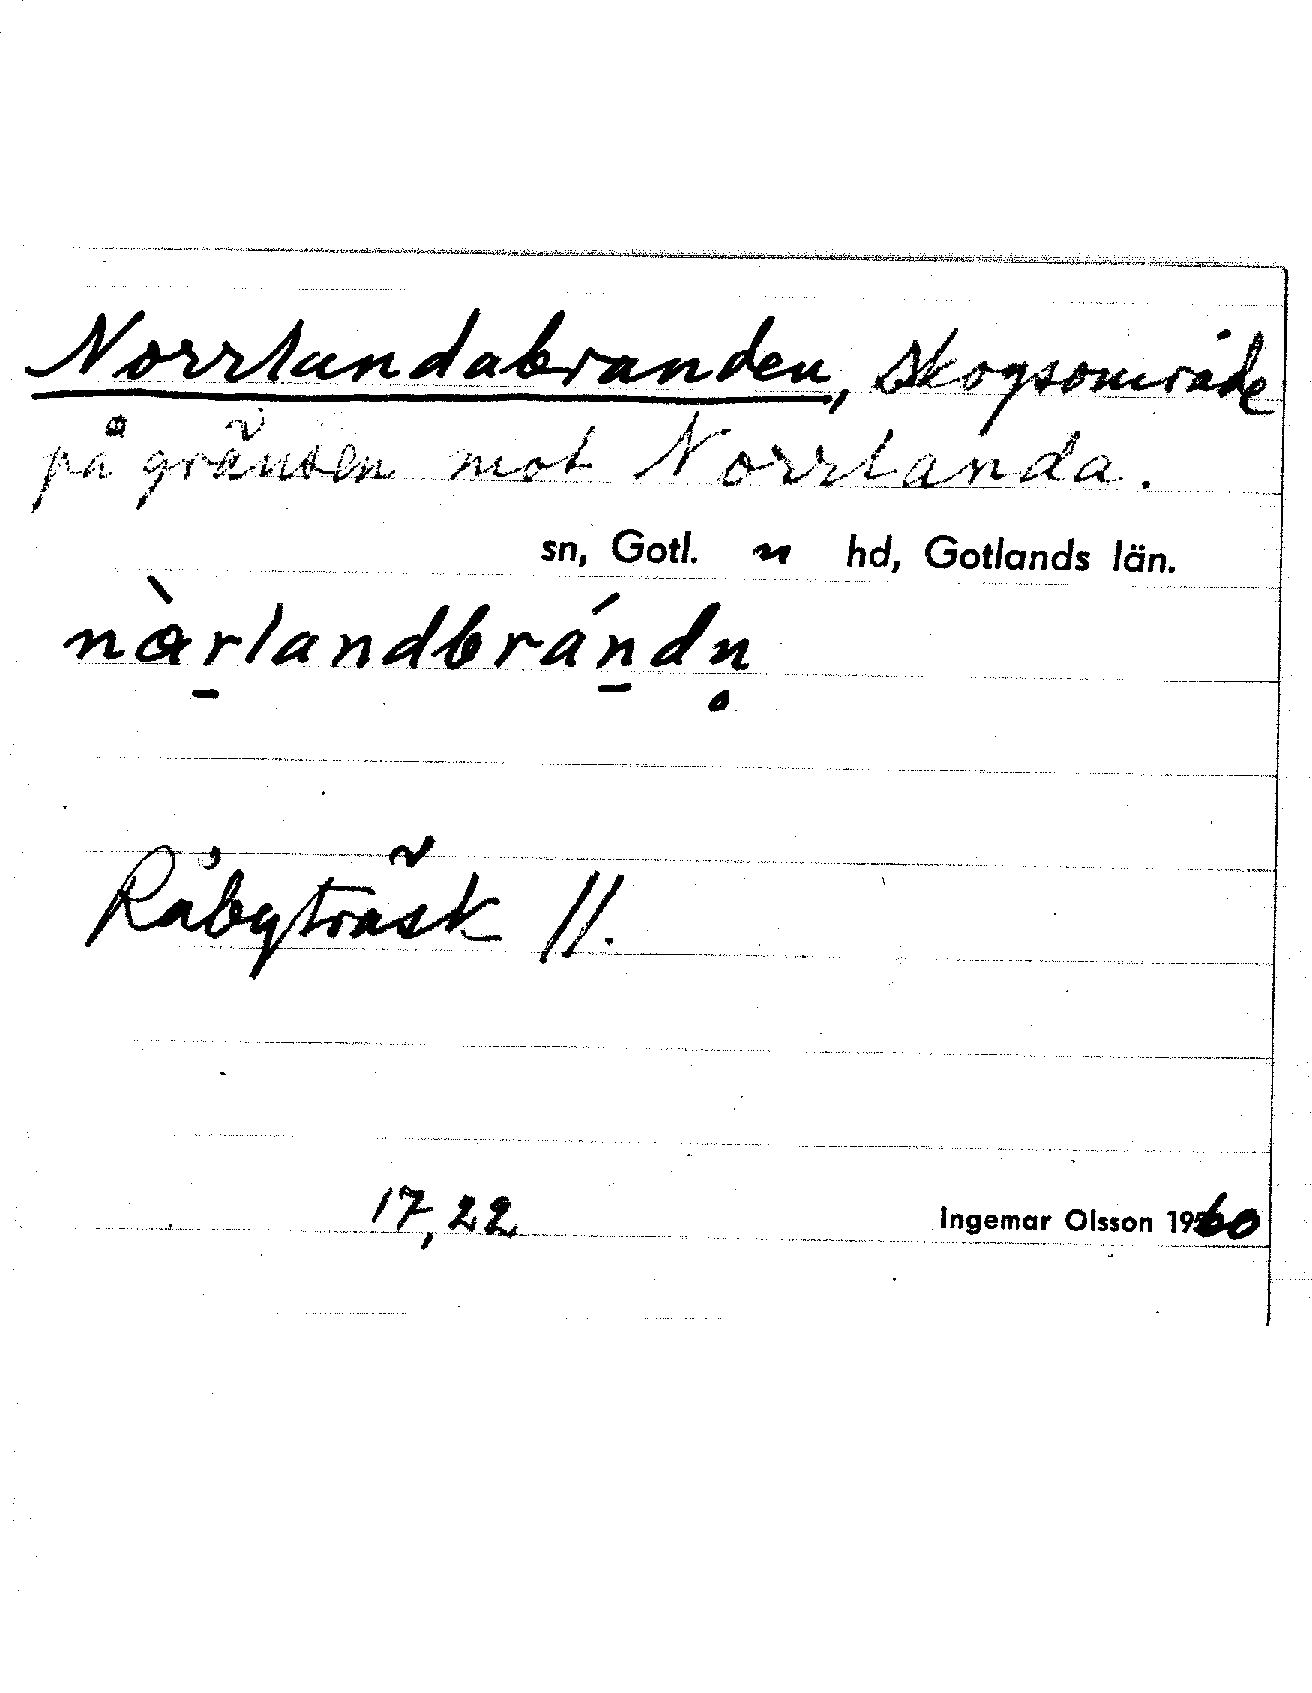 Norrlandabranden, skogsområde
på gränsen mot Norrlanda.
sn, Gotl. n hd, Gotlands län.
nàr̲landbrán̲dn̥
Råbyträsk 11.
17,22 Ingemar Olsson 1960